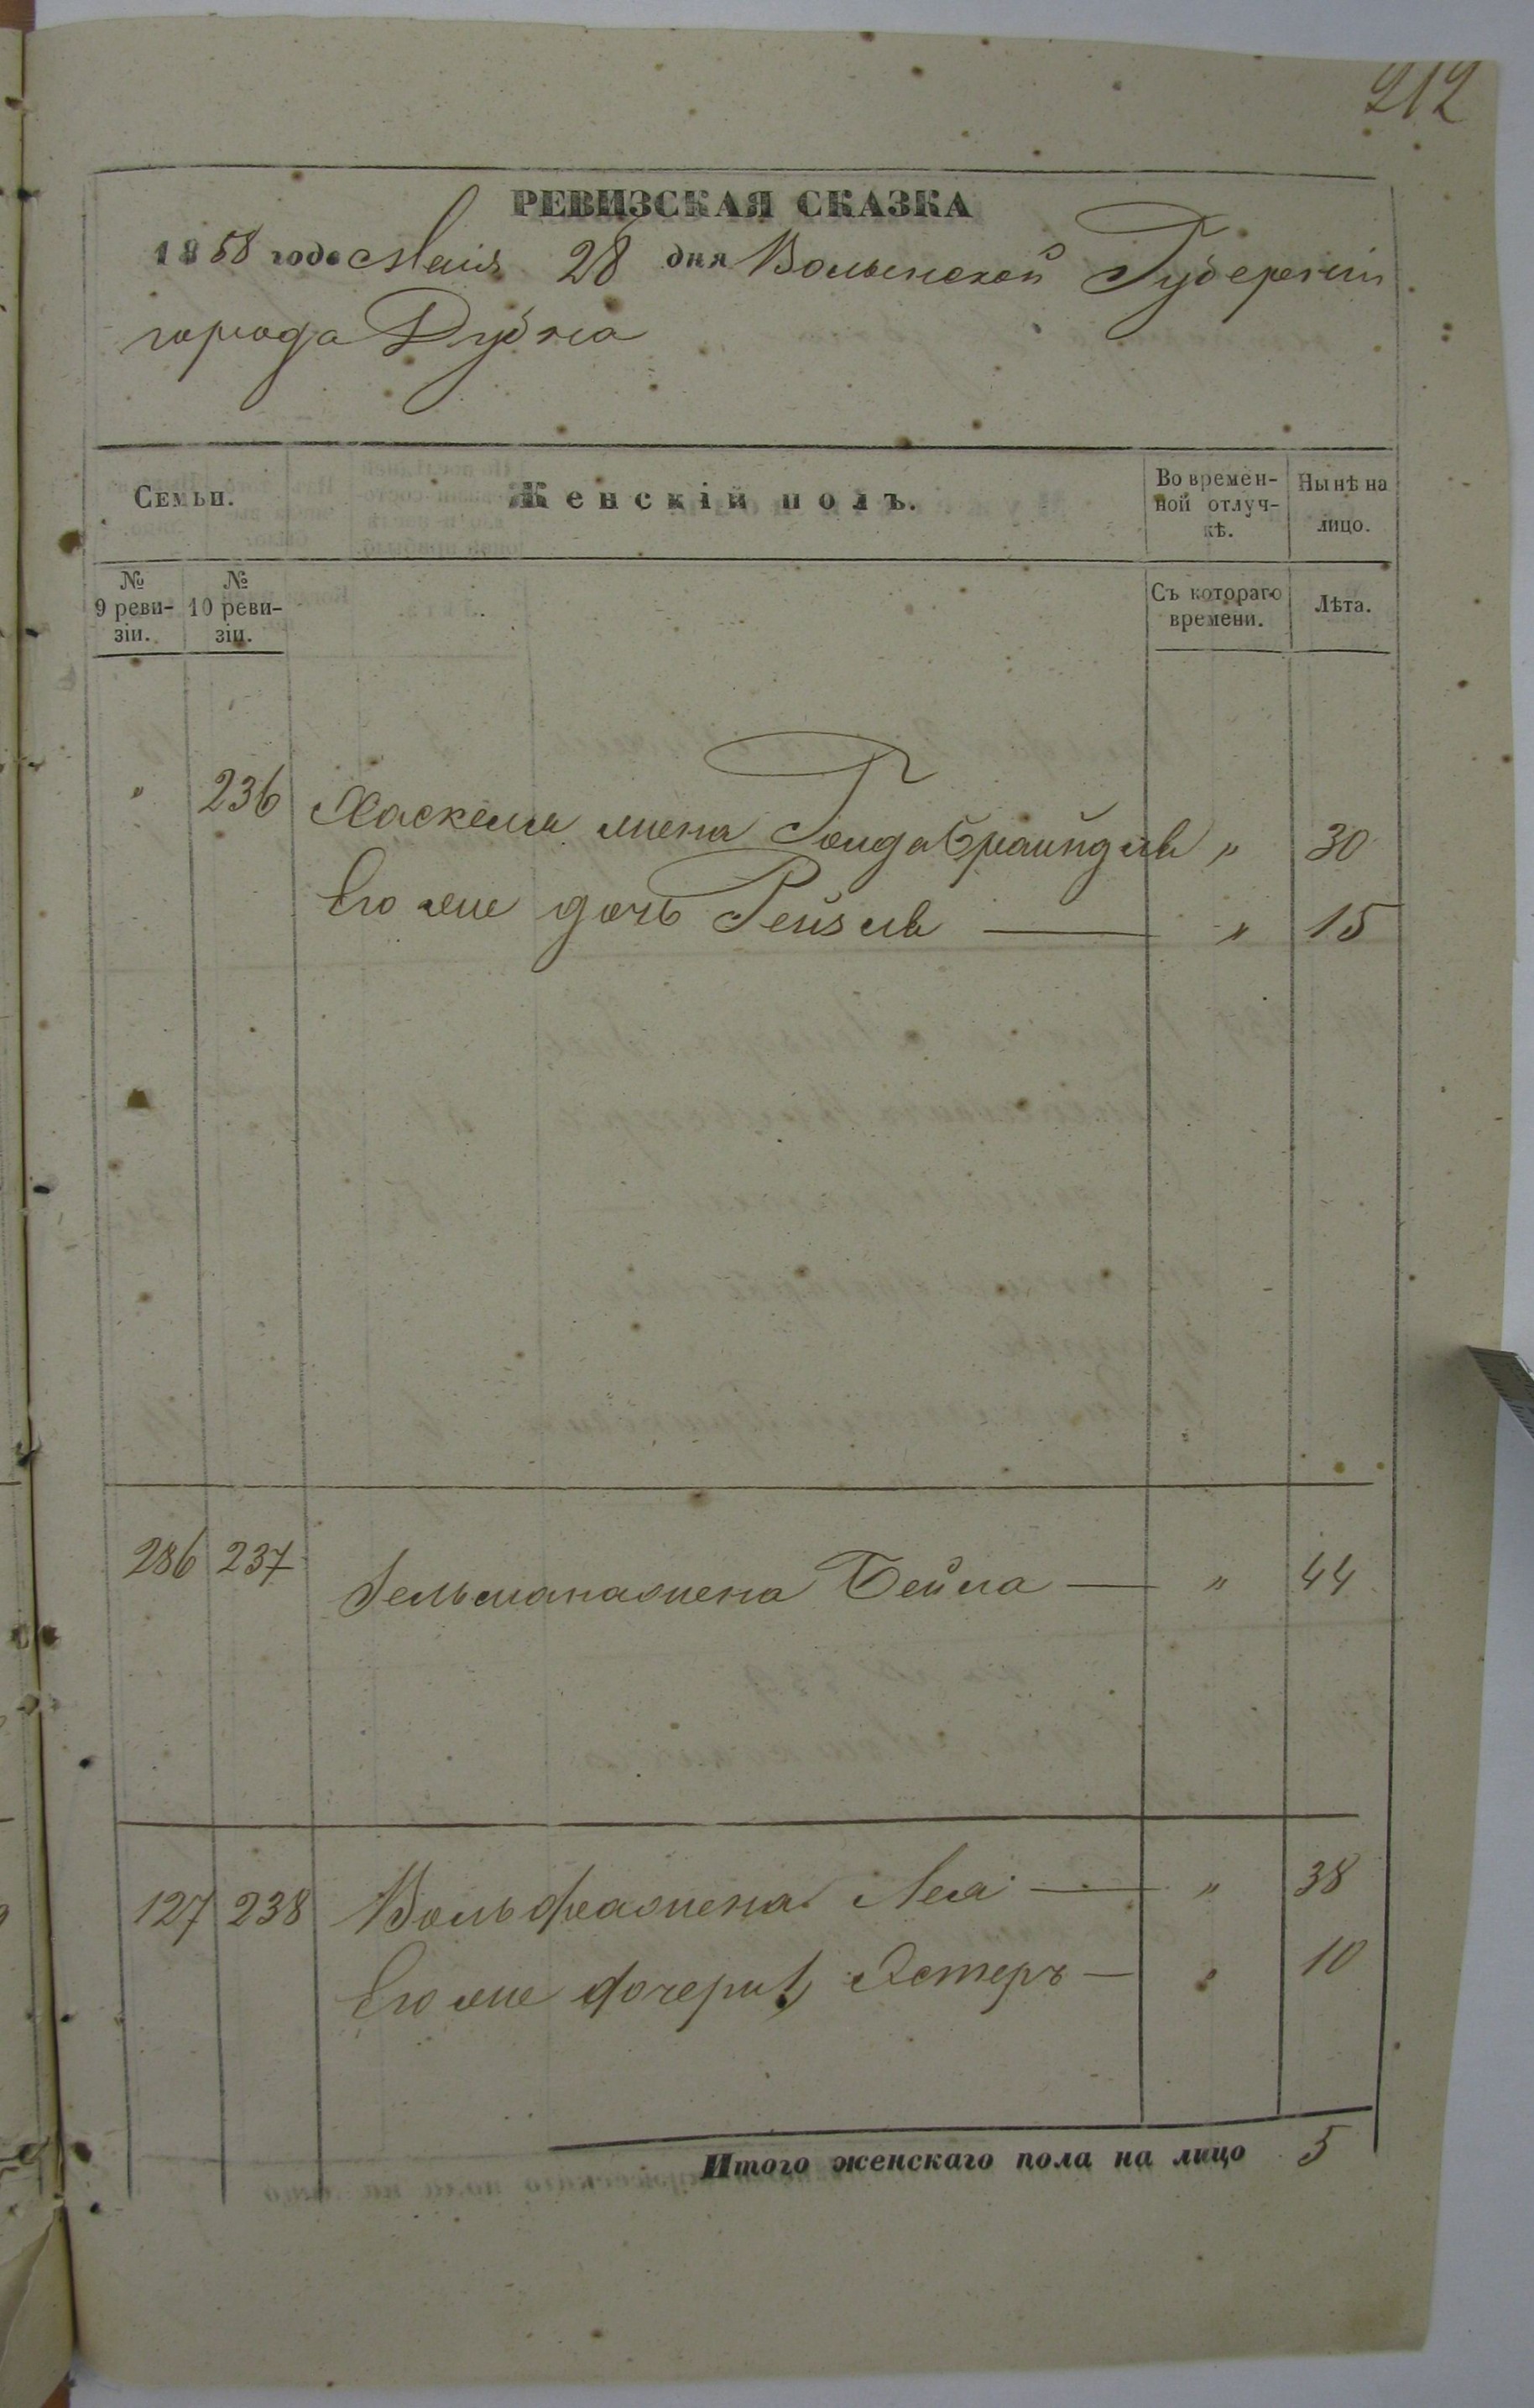 212
РЕВИЗСКАЯ СКАЗКА
1858 года Маія 28 дня Волынской Губерніи
города Дубна
Семьи. Женскій полъ. Во времен-ной отлуч-кѣ. Нынѣ на лицо.
№ 9 реви-зіи. № 10 реви-зіи. Съ котораго времени. Лѣта.
" 236 Хаскеля жена Голда Брайндля " 30
Его же дочь Рейзля " 15
286 237 Зельмана жена Бейла " 44
127 238 Вольфа жена Лея " 38
Его же дочери 1, Эстеръ " 10
Итого женскаго пола на лицо 5